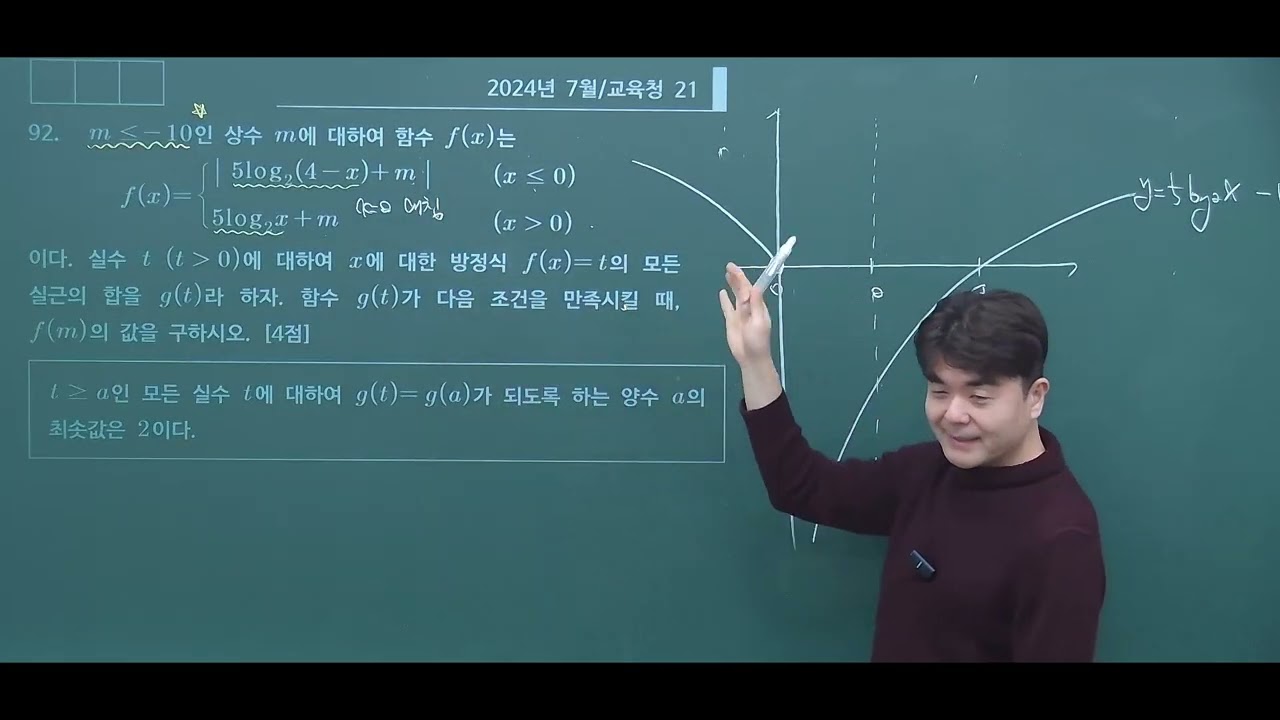 2024년 7월/교육청 21
92. m ≤ -10인 상수 m에 대하여 함수 f(x)는
f(x)= { | 5log₂(4-x)+m | (x ≤ 0)
5log₂x+m (x > 0)
이다. 실수 t (t>0)에 대하여 x에 대한 방정식 f(x)=t의 모든
실근의 합을 g(t)라 하자. 함수 g(t)가 다음 조건을 만족시킬 때,
f(m)의 값을 구하시오. [4점]
t ≥ a인 모든 실수 t에 대하여 g(t)=g(a)가 되도록 하는 양수 a의
최솟값은 2이다.
대칭
y=5log₂x -